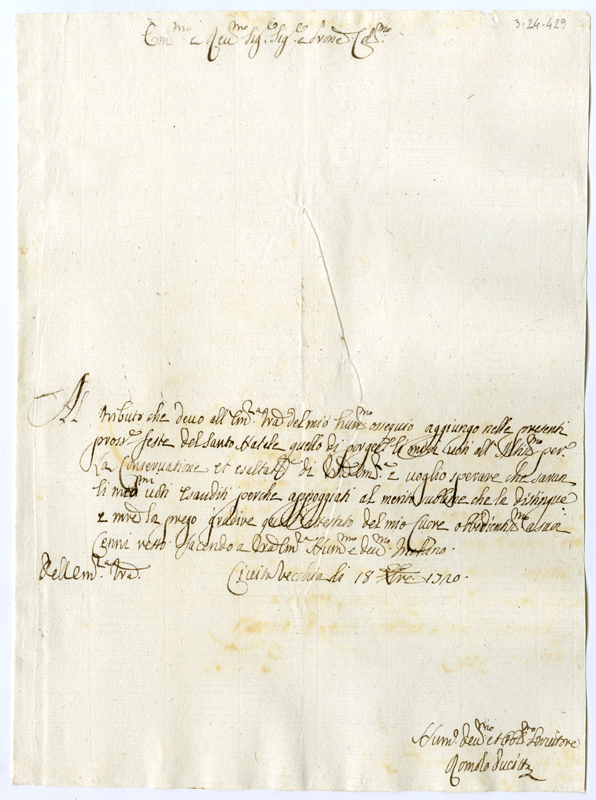 3-24-429
Em.mo e Reu.mo Sig.r Sig.r e Prone Col.mo
Al tributo che deuo all' Em.za Vrã del mio hum.mo ossequio aggiungo nelle presenti
pross.e feste del Santo Natale quello di porgere li miei uoti all' Altis.mo per
la Conseruatione et esaltat.ne di V. Em.za e uoglio sperare che saran
li miei uoti esauditi perche appoggiati al merito sublime che la distingue
e la prego gradire attestato del mio Cuore obbedientis.mo a suoi
Cenni resto facendo a Vrã Em.za Hum.mo e deu.mo Inchino.
Dell' Em.za Vrã Ciuita Vecchia li 18 Xbre 1720.
Hum.o deu.mo et Obb.mo Seruitore
Romolo